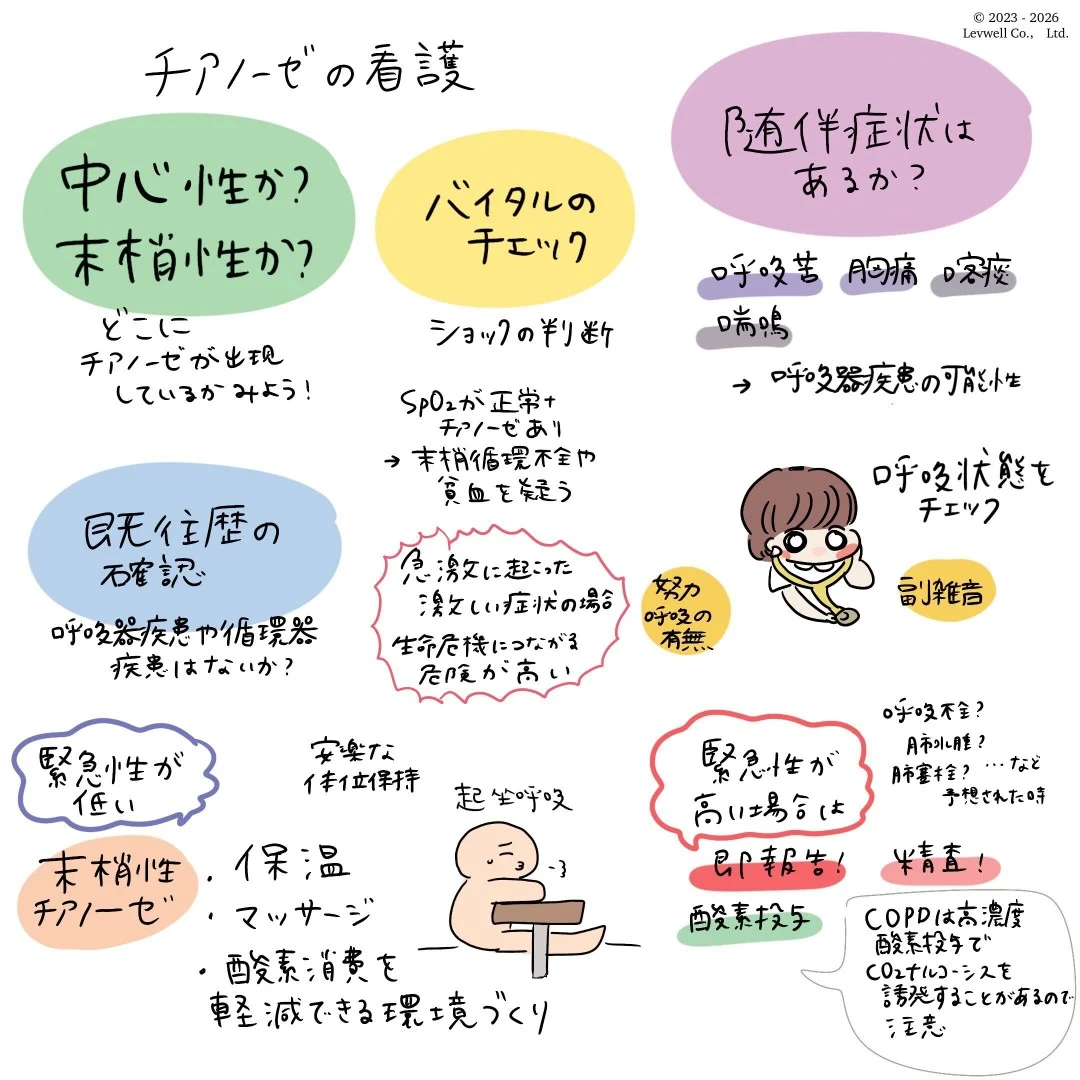 © 2023 - 2026
Levwell Co., Ltd.
チアノーゼの看護
中心性か?
末梢性か?
どこに
チアノーゼが出現
しているかみよう!
バイタルの
チェック
ショックの判断
SpO2が正常+
チアノーゼあり
→ 末梢循環不全や
貧血を疑う
随伴症状は
あるか?
呼吸苦 胸痛 喀痰
喘鳴
→ 呼吸器疾患の可能性
既往歴の
確認
呼吸器疾患や循環器
疾患はないか?
急激に起こった
激しい症状の場合
生命危機につながる
危険が高い
呼吸状態を
チェック
努力
呼吸の
有無
副雑音
緊急性が
低い
末梢性
チアノーゼ
・保温
・マッサージ
・酸素消費を
軽減できる環境づくり
安楽な
体位保持
起坐呼吸
緊急性が
高い場合は
呼吸不全?
肺水腫?
肺塞栓? …など
予想された時
即報告!
精査!
酸素投与
COPDは高濃度
酸素投与で
CO2ナルコーシスを
誘発することがあるので
注意